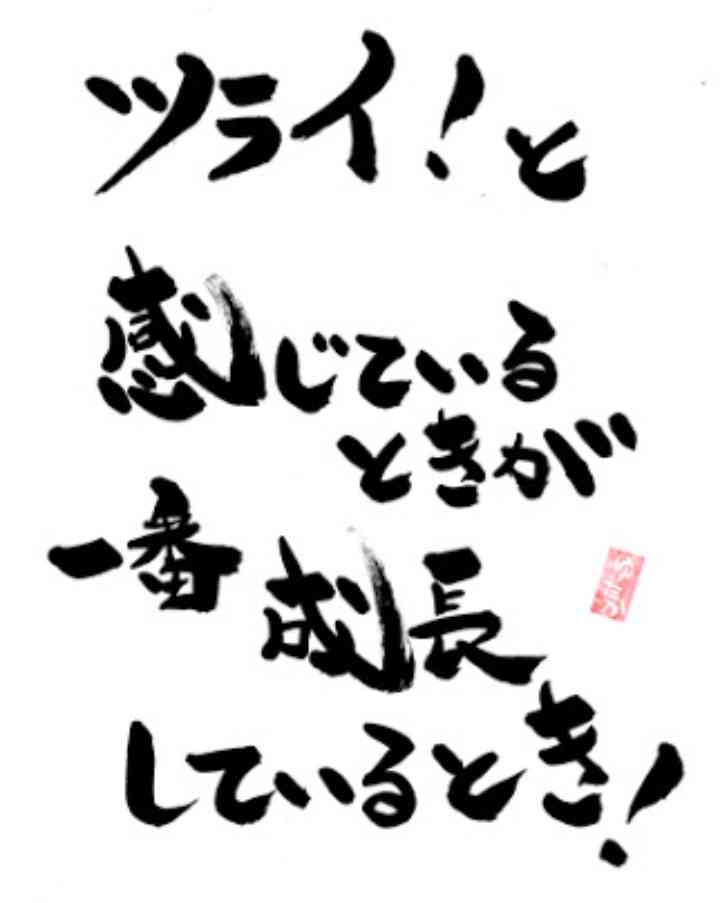 ツライ!と
感じている
ときが
一番成長
しているとき!
ゆたか